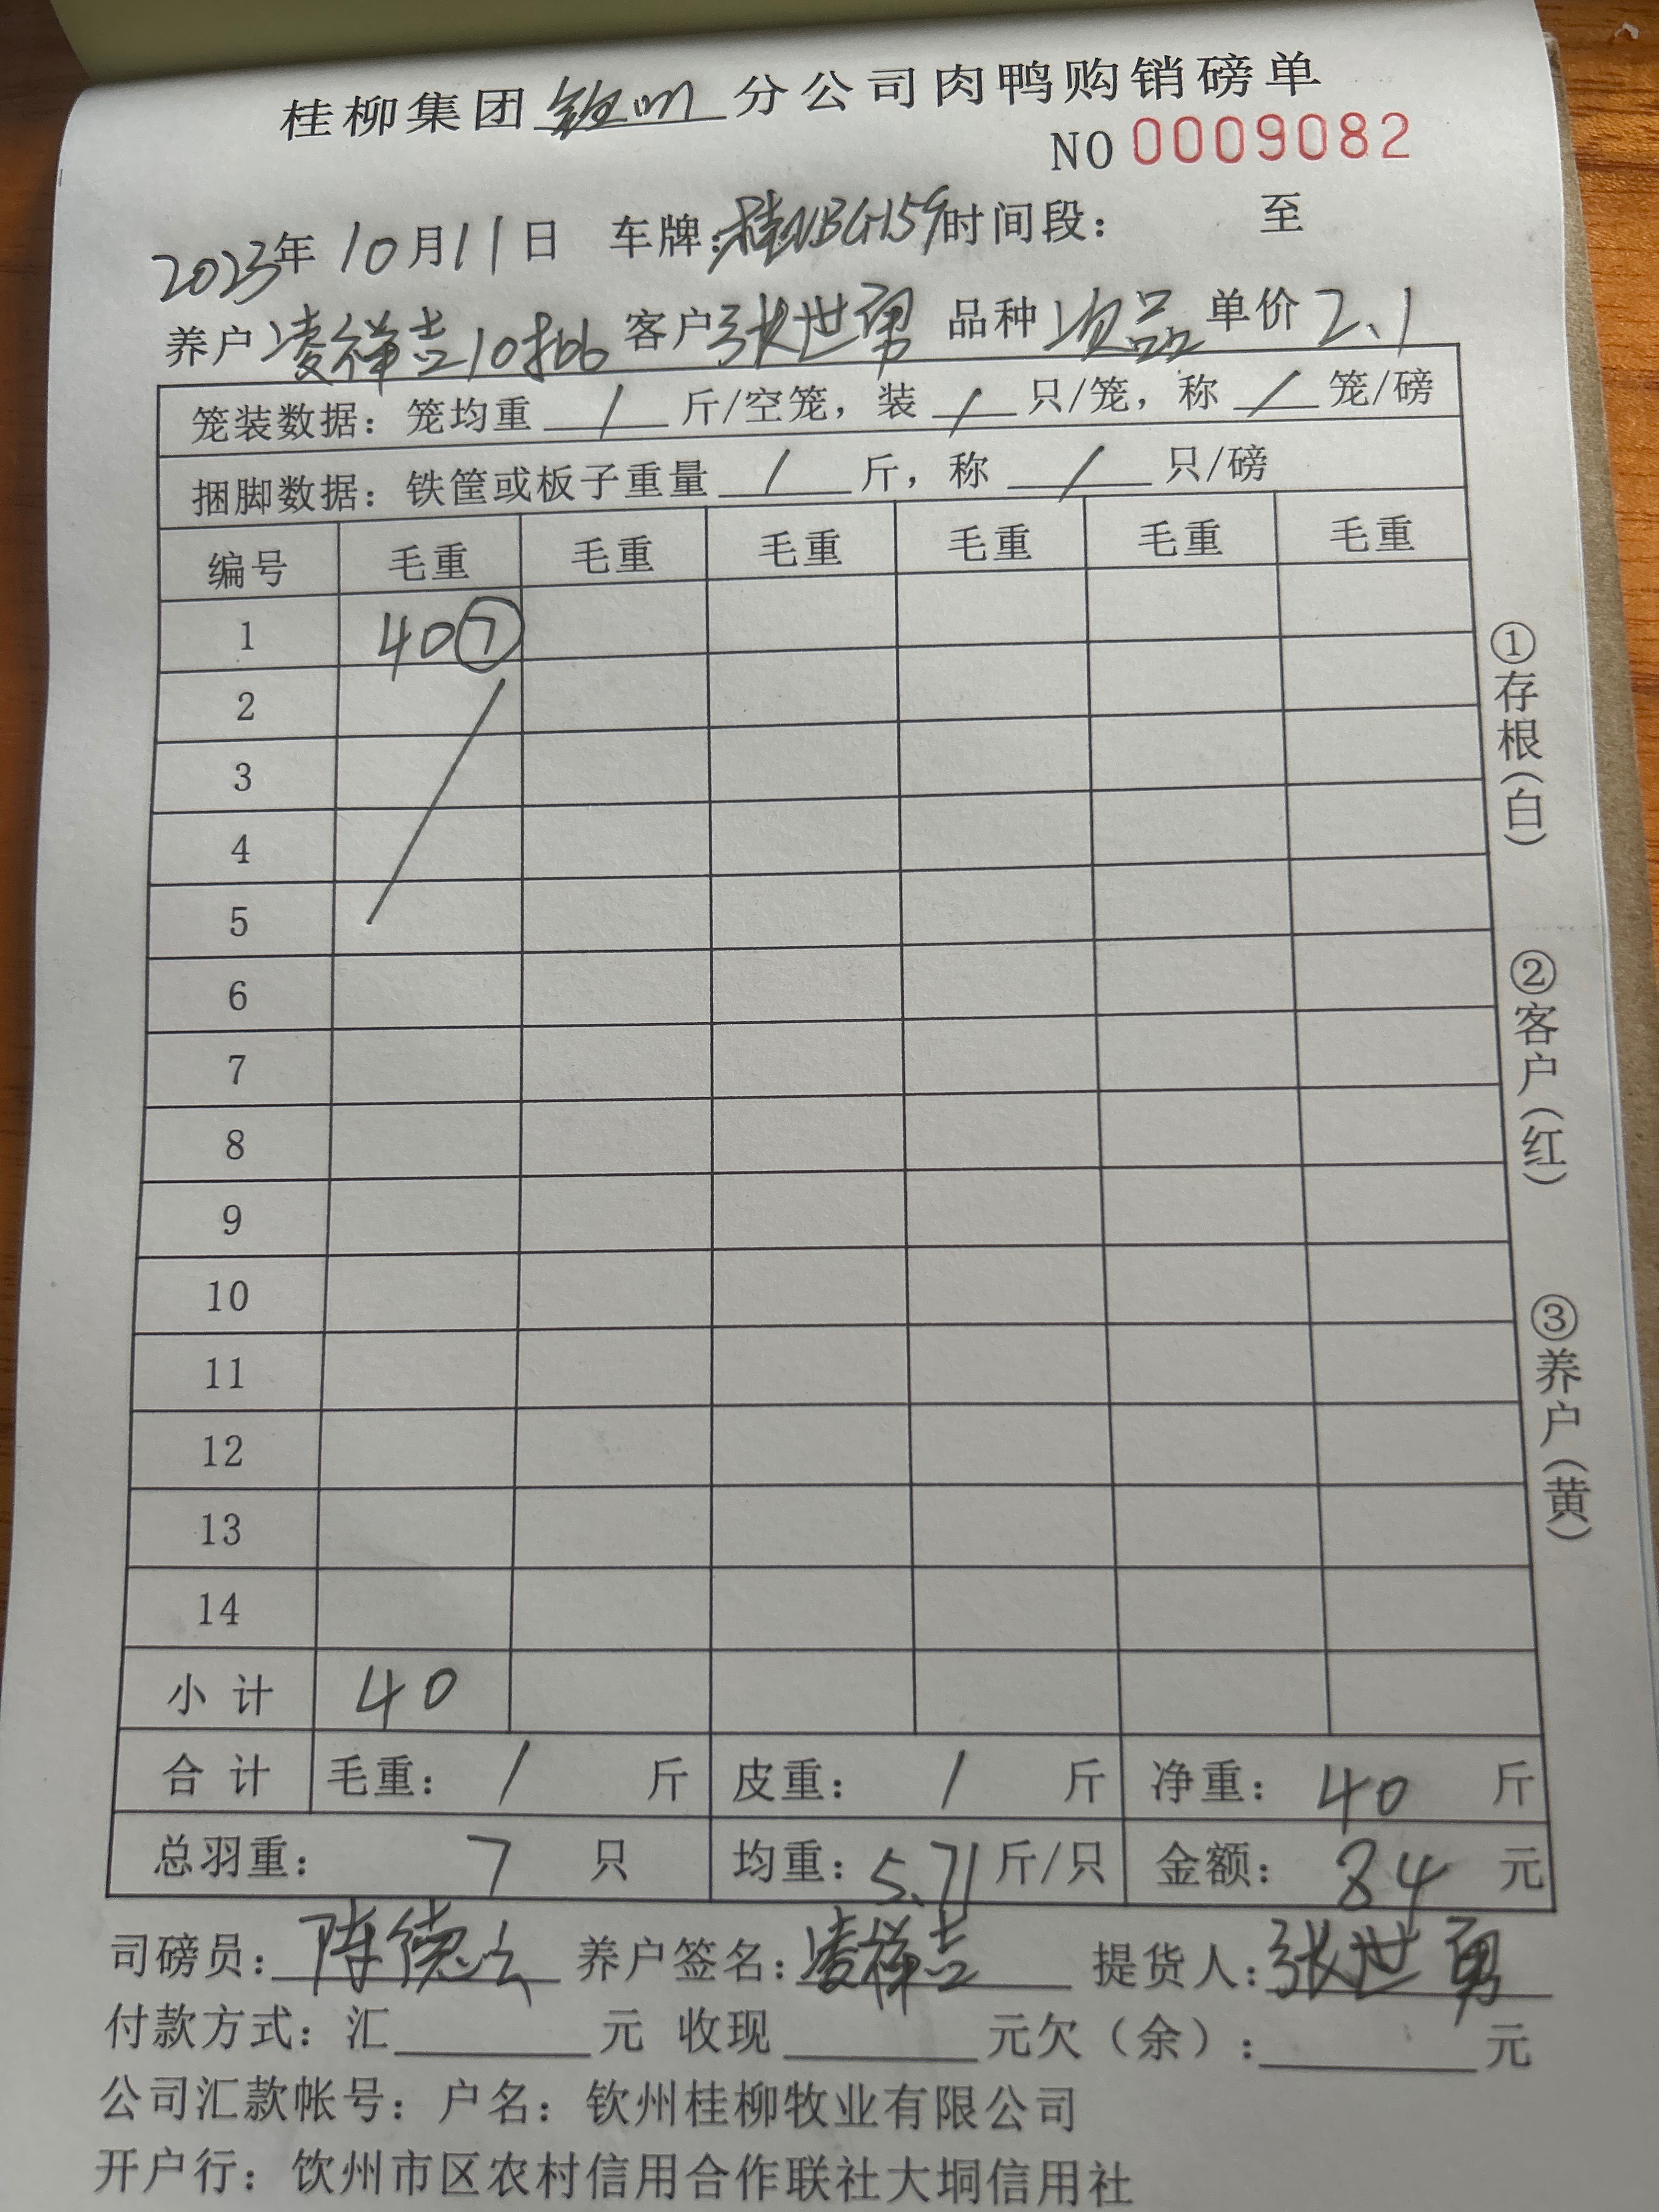 桂柳集团钦州分公司肉鸭购销磅单
NO 0009082
2023年10月11日 车牌:桂NBG159时间段: 至
养户凌祥吉10批 客户张世勇 品种次品 单价2.1
笼装数据: 笼均重 / 斤/空笼, 装 / 只/笼, 称 / 笼/磅
捆脚数据: 铁筐或板子重量 / 斤, 称 / 只/磅
编号 毛重 毛重 毛重 毛重 毛重 毛重
1 40⑦
2
3
4
5
6
7
8
9
10
11
12
13
14
小计 40
合计 毛重: / 斤 皮重: / 斤 净重: 40 斤
总羽重: 7 只 均重: 5.71 斤/只 金额: 84 元
司磅员: 陈德 养户签名: 凌祥吉 提货人: 张世勇
付款方式: 汇______元 收现______元欠(余):______元
公司汇款帐号: 户名: 钦州桂柳牧业有限公司
开户行: 饮州市区农村信用合作联社大垌信用社
①存根(白)
②客户(红)
③养户(黄)